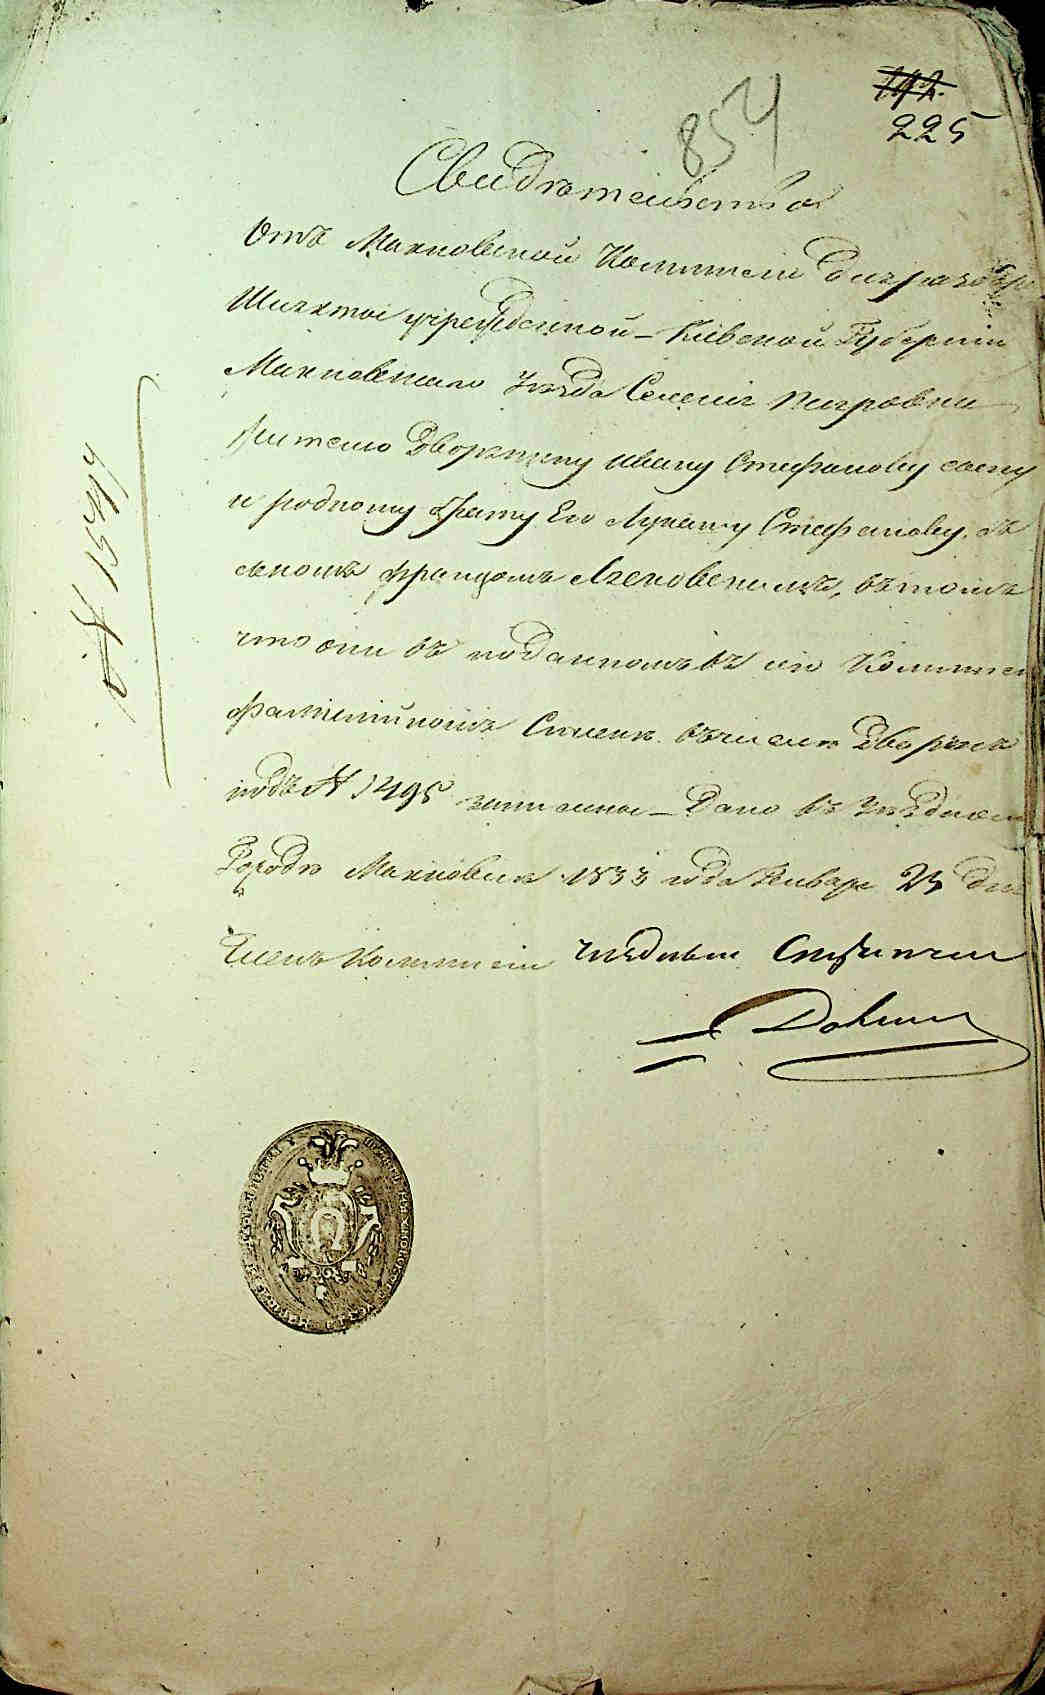 854
225
Свидѣтельство
Отъ Махновской Комисіи для разбора
Шляхты учрежденной – Кіевской Губерніи
Махновскаго Уѣзда Селенія Петровки
жителю Дворянину Ивану Стефанову сыну
и родному брату Его Лукашу Стефанову съ
сыномъ Францомъ въ томъ
что они въ поданномъ въ сію Комисію
фамилійномъ Спискѣ въ числѣ Дворянъ
подъ № 1495 записаны – Дано въ Уѣздномъ
Городѣ Махновкѣ 1833 года Января 25 дня
Членъ Комисіи уѣздный Стряпчій
№ 1544